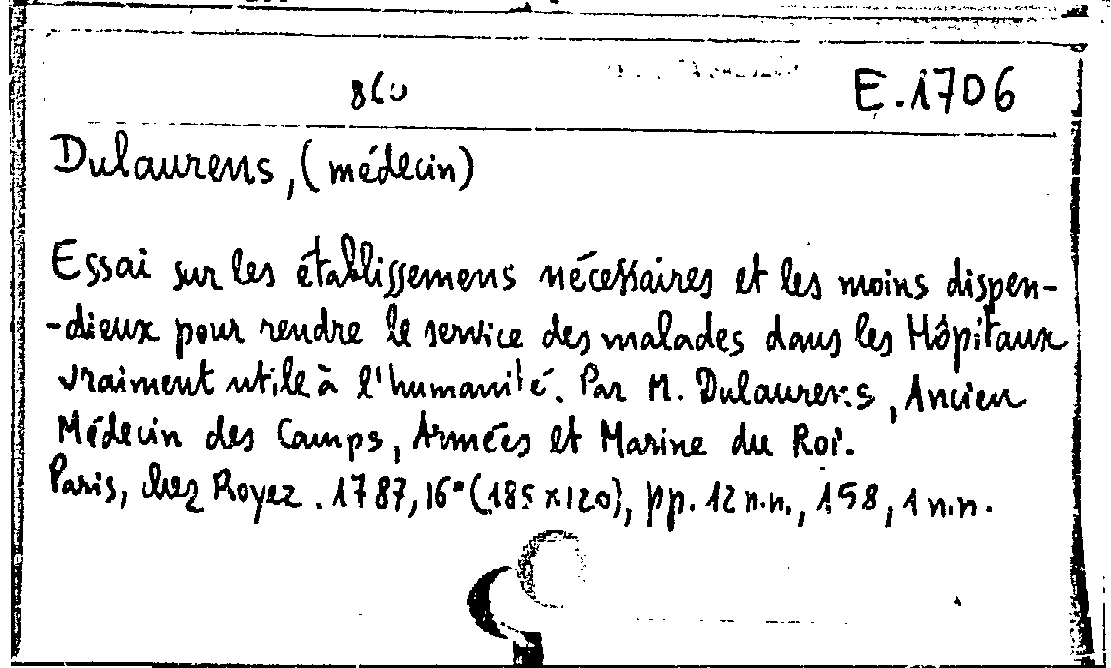 860 E.1706
Dulaurens, (médecin)
Essai sur les établissemens nécessaires et les moins dispen-
-dieux pour rendre le service des malades dans les Hôpitaux
vraiment utile à l'humanité. Par M. Dulaurens, Ancien
Médecin des Camps, Armées et Marine du Roi.
Paris, chez Royez. 1787, 16° (185 x 120), pp. 12 n.n., 158, 1 n.n.